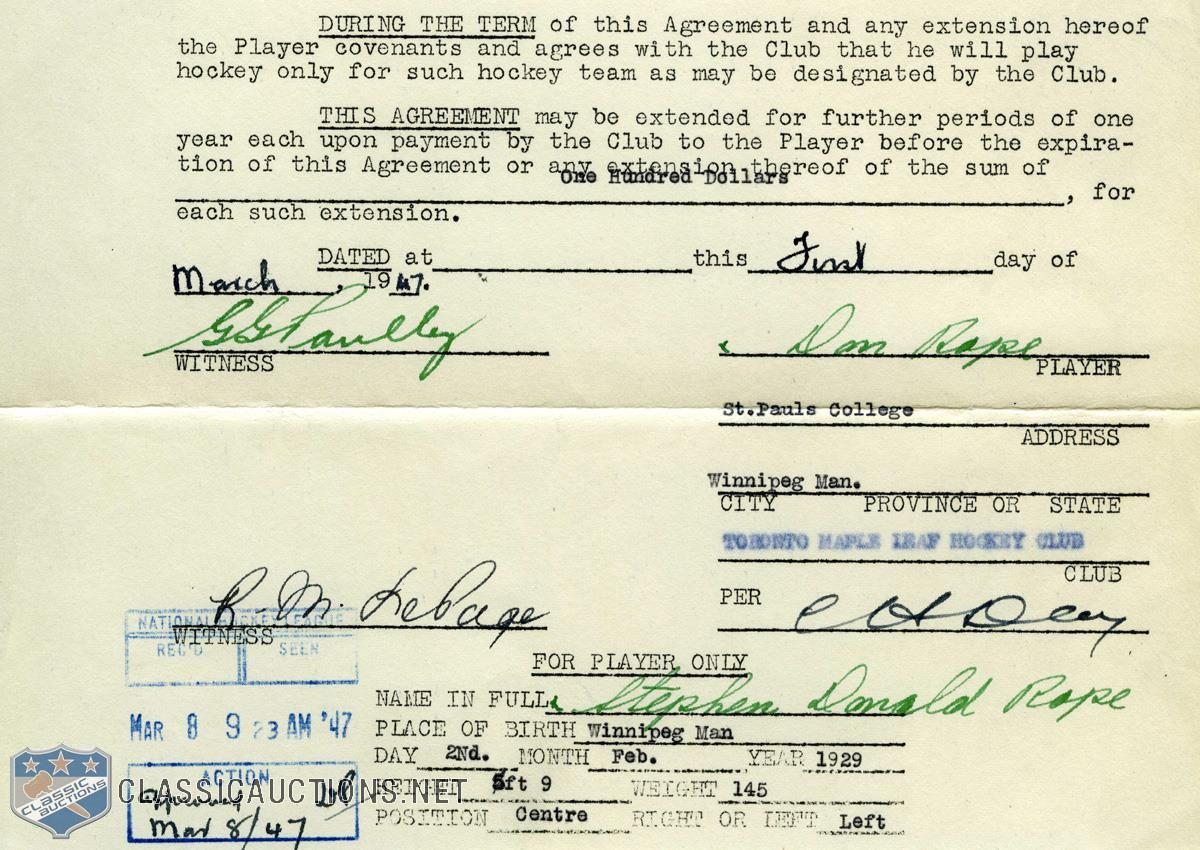 DURING THE TERM of this Agreement and any extension hereof
the Player covenants and agrees with the Club that he will play
hockey only for such hockey team as may be designated by the Club.
THIS AGREEMENT may be extended for further periods of one
year each upon payment by the Club to the Player before the expira-
tion of this Agreement or any extension thereof of the sum of
One Hundred Dollars
, for
each such extension.
DATED at this First day of
March, 1947.
Don Rope
WITNESS
PLAYER
St.Pauls College
ADDRESS
Winnipeg Man.
CITY PROVINCE OR STATE
TORONTO MAPLE LEAF HOCKEY CLUB
CLUB
PER
R. M. LePage
C H Day
NATIONAL HOCKEY LEAGUE
WITNESS
REC'D SEEN
FOR PLAYER ONLY
NAME IN FULL Stephen Donald Rope
MAR 8 9 23 AM '47
PLACE OF BIRTH Winnipeg Man
DAY 2Nd. MONTH Feb. YEAR 1929
ACTION
HEIGHT 5ft 9 WEIGHT 145
Mar 8/47
POSITION Centre RIGHT OR LEFT Left
CLASSIC AUCTIONS
CLASSICAUCTIONS.NET